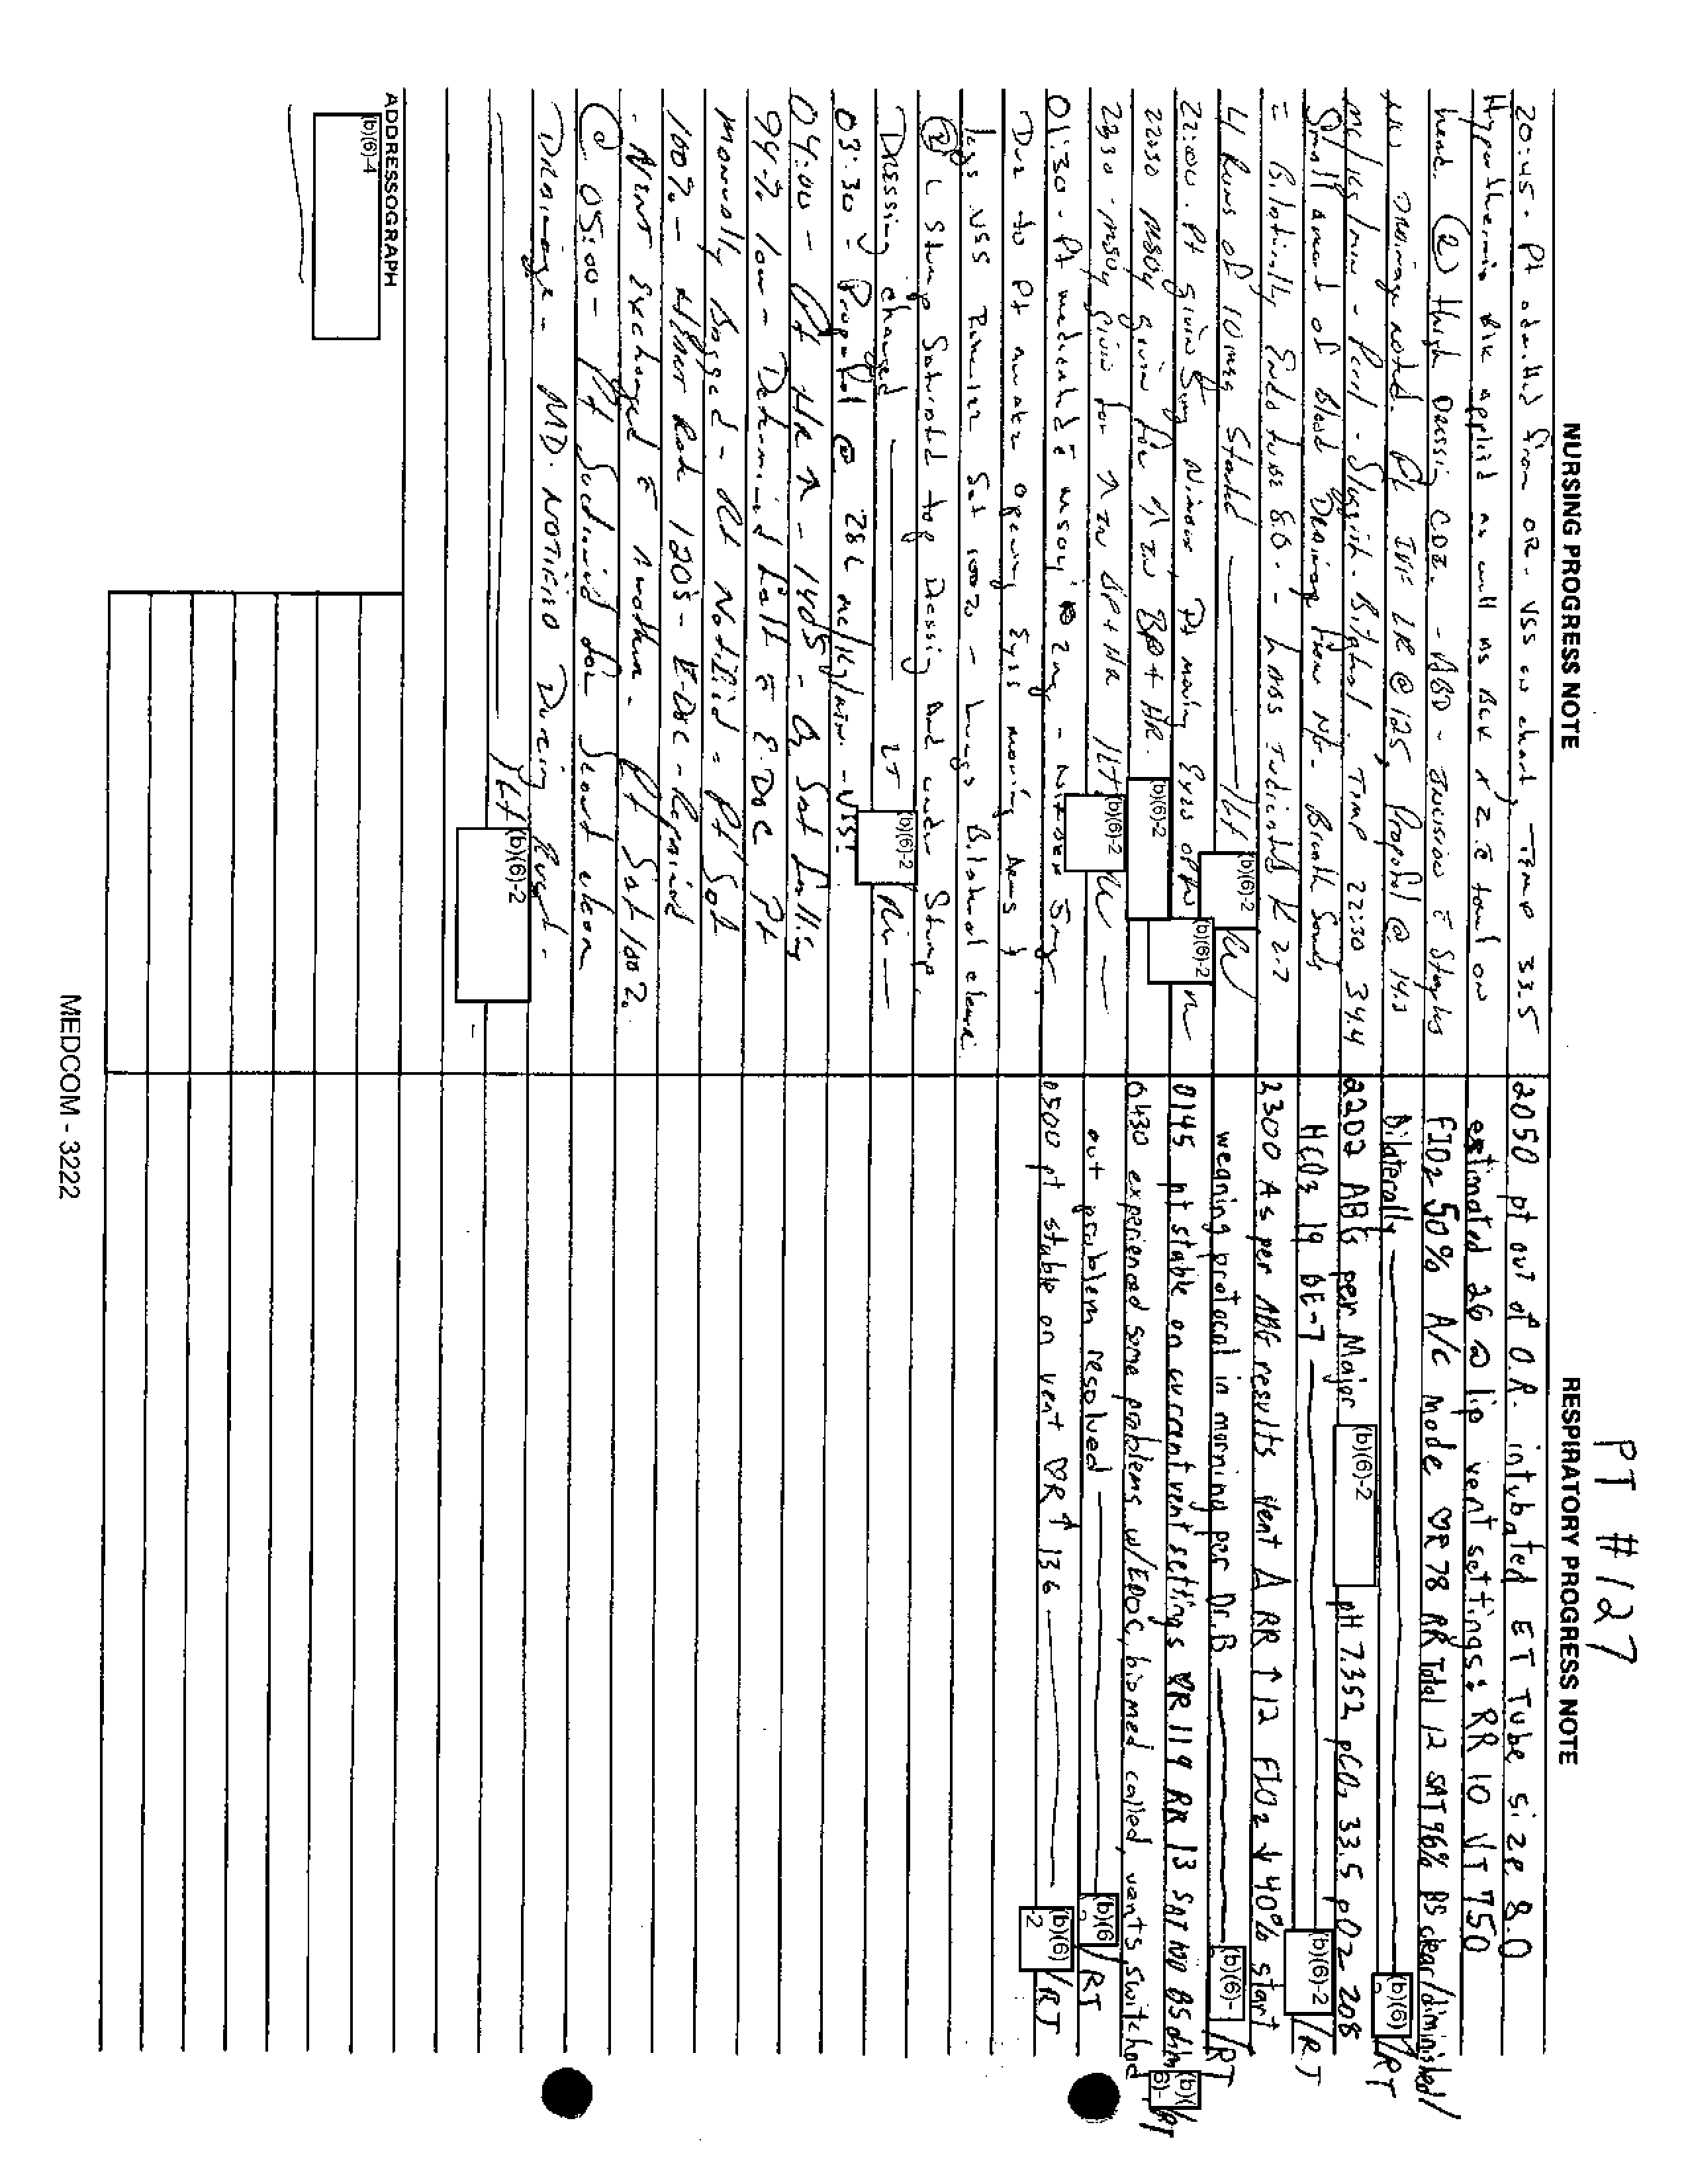 PT #127
NURSING PROGRESS NOTE
20:45 - Pt admitted from OR - VSS on chart, Temp 33.5
Hypothermia applied as well as Blk x 2 c towel on
head. (R) Thigh Dressing CDI. - ABD - Incision c Staples
no Drainage noted. Pt IVF LR @ 125, Propofol @ 14.2
mc/kg/min - Perl - Sluggish - Bilateral. Temp 22:30 34.4
Small amount of Blood Drainage from - Breath Sounds
= Bilaterally Endotube 8.0 - Labs Indicated K 2.7
4 Runs of 10 meq Started 1Lt (b)(6)-2 RN
22:00 - Pt given 5mg Pt moving Eyes open (b)(6)-2
2230 MSO4 given for ↑ in BP + HR. (b)(6)-2
2330 - MSO4 given for ↑ in BP + HR 1Lt (b)(6)-2 RN
01:30 - Pt medicated c MSO4 2mg - 5mg,
Due to Pt awake opening Eyes moving Arms +
legs VSS Remain Sat 100% - Lungs Bilateral clear.
@ L Stump Saturated top Dressing and under Stump,
Dressing changed LT (b)(6)-2 RN
03:30 - Propofol @ 28.2 mc/kg/min. - VSS!
04:00 - Pt HR ↑ - 140s - O2 Sat falling
94% low - Determined fault c E-Doc Pt
manually Bagged - Rt Notified - Pt Sat
100% - Heart Rate 120s - E-Doc - Repaired
- Vent Exchanged c Another - Pt Sat 100%
@ 05:00 - Pt Suctioned for Scant clear
Drainage - MD. NOTIFIED During Event.
1Lt (b)(6)-2
ADDRESSOGRAPH
(b)(6)-4
RESPIRATORY PROGRESS NOTE
2050 pt out of O.R. intubated ET Tube size 8.0
estimated 26 @ lip vent settings: RR 10 VT 750
FIO2 50% A/C Mode ♡R 78 RR Total 12 SAT 96% BS clear/diminished/
Bilaterally (b)(6) /RT
2202 ABG's per Major (b)(6)-2 pH 7.352 pCO2 33.5 pO2 208
HCO3 19 BE-7 (b)(6)-2 /RT
2300 As per ABG results Vent Δ RR ↑ 12 FIO2 ↓ 40% start
weaning protocol in morning per Dr. B (b)(6)- /RT
0145 pt stable on current vent settings ♡R 119 RR 13 SAT 100 BS dim (b)(6)- /RT
0430 experienced some problems w/EDOC, biomed called, vents switched
out problem resolved (b)(6) /RT
0500 pt stable on vent ♡R ↑ 136 (b)(6)-2 /RT
MEDCOM - 3222